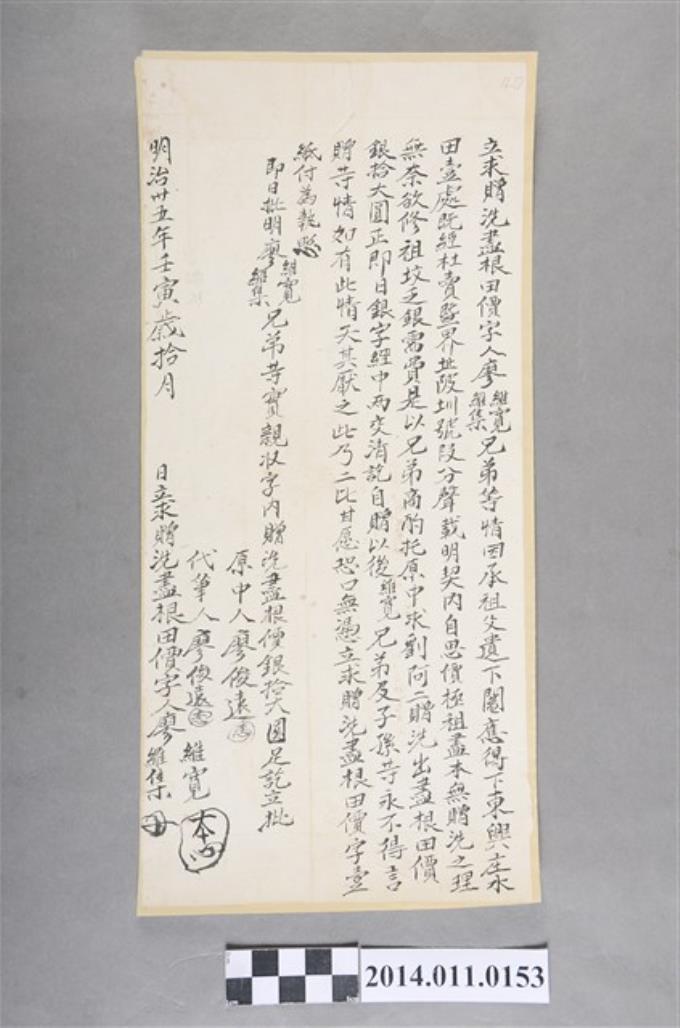 立求贈洗盡根田價字人廖維寬維集兄弟等情因承祖父遺下鬮應得下東興庄水
田壹處既經杜賣暨界址陂圳號段分聲載明契内自思價極祖盡本無贈洗之理
無奈欲修祖坟乏銀需費是以兄弟商酌托原中求劉阿二贈洗出盡根田價
銀拾大圓正即日銀字經中兩交清訖自贈以後維寬兄弟及子孫等永不得言
贈等情如有此情天其厭之此乃二比甘愿恐口無憑立求贈洗盡根田價字壹
紙付為執照
即日批明廖維寬維集兄弟等實親收字内贈洗盡根價銀拾大圓足訖立批
原中人廖俊遠
代筆人廖俊遠
明治卅五年壬寅歲拾月 日立求贈洗盡根田價字人廖維寬維集
2014.011.0153